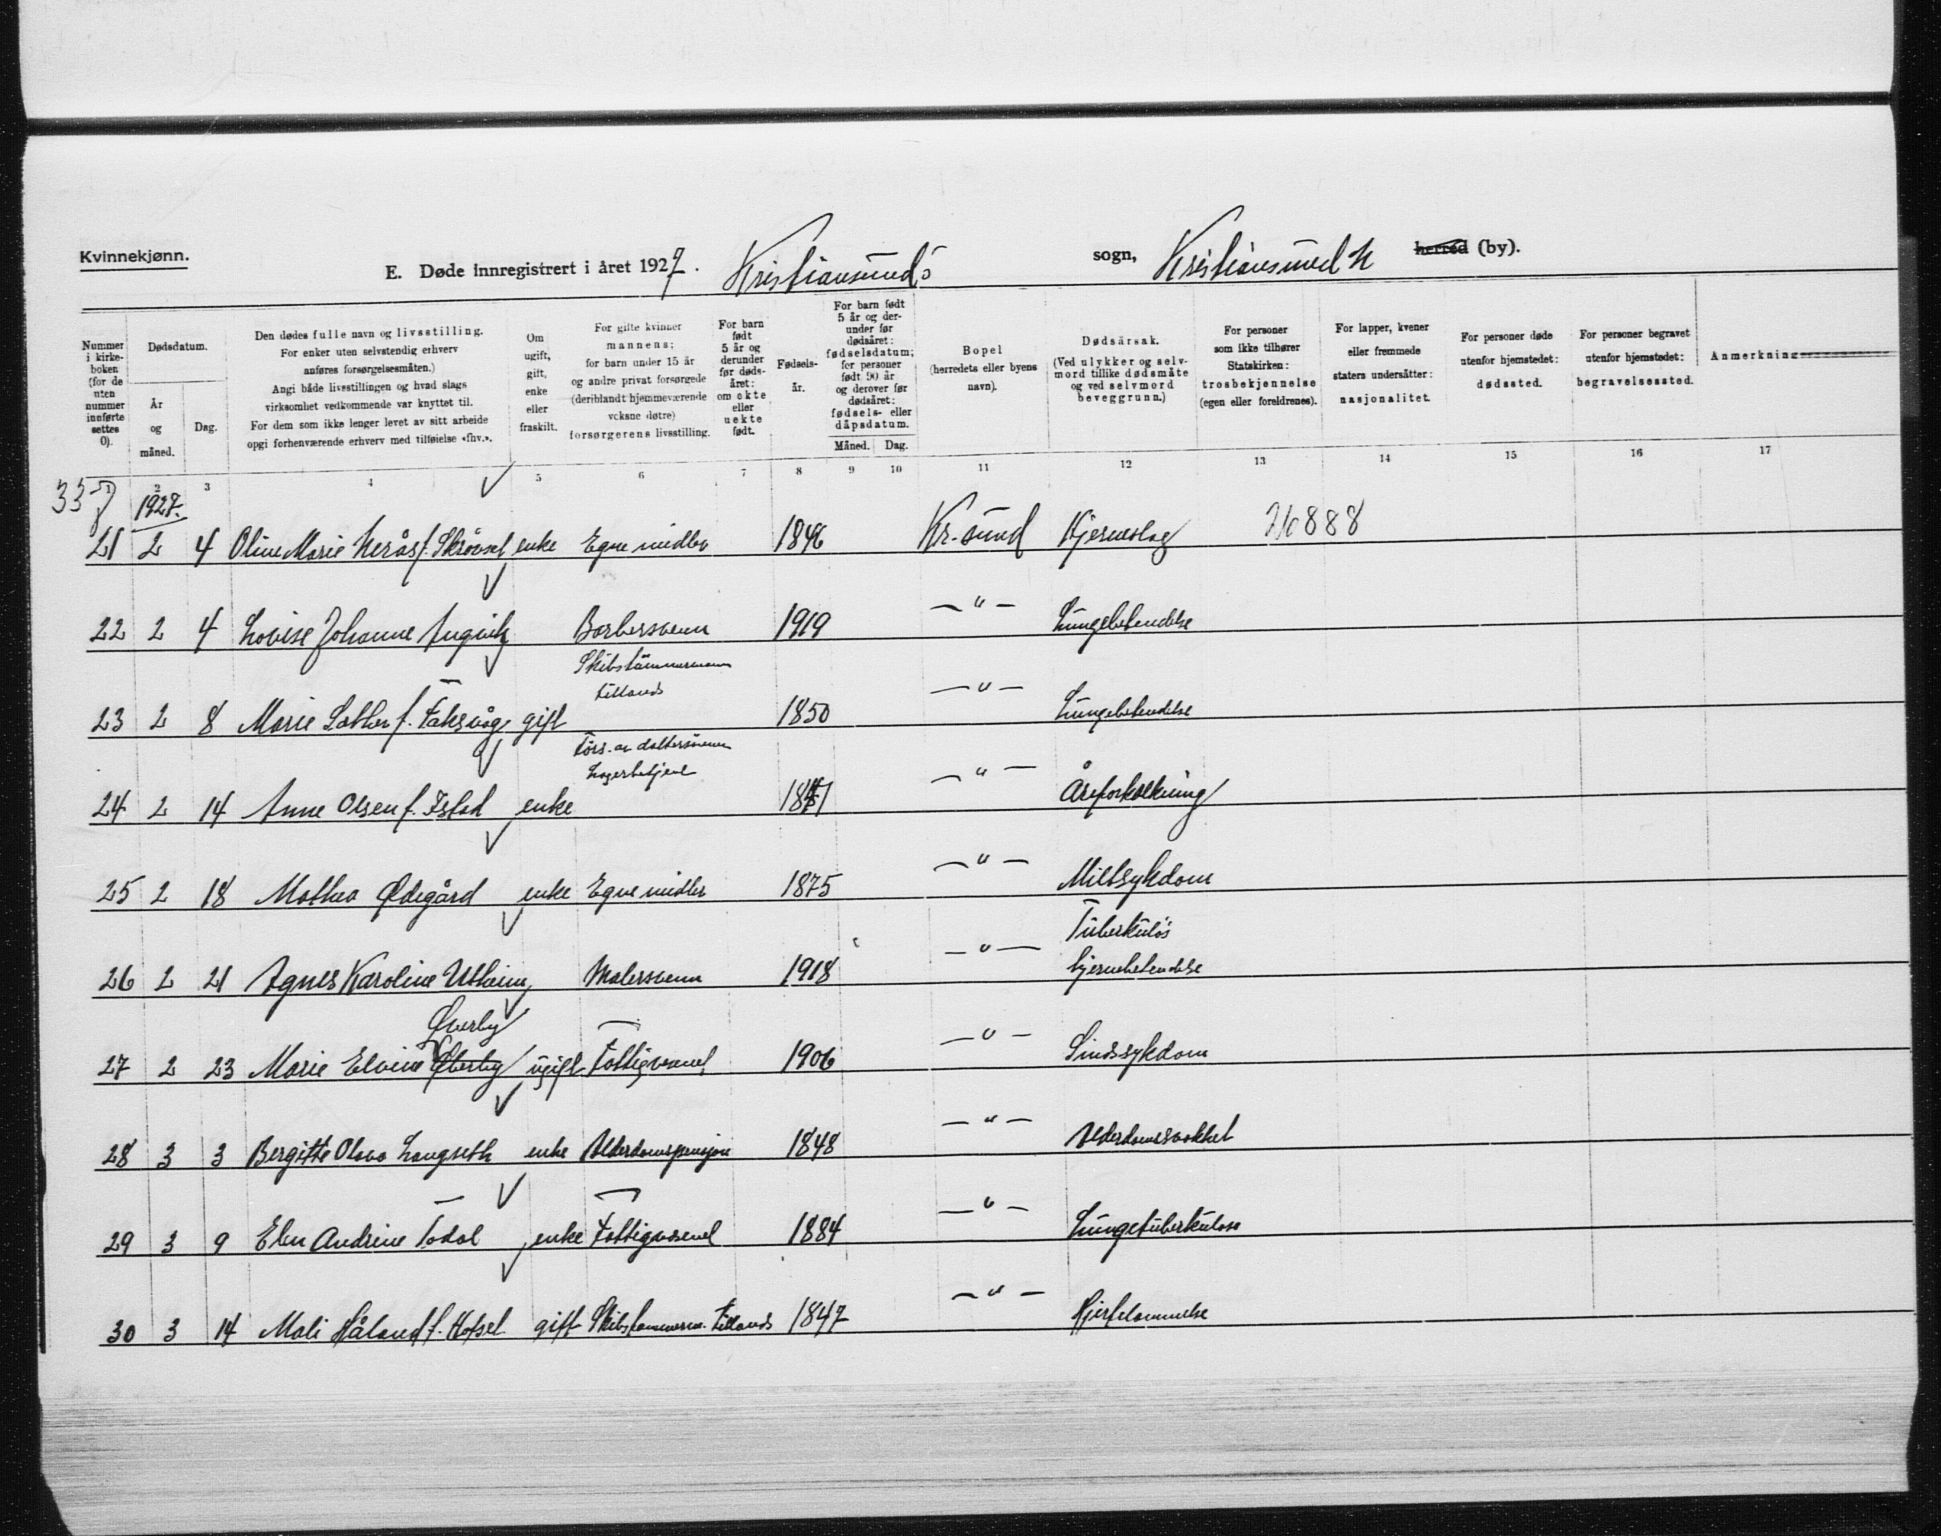 Kvinnekjønn.
E. Døde innregistrert i året 1927. Kristiansund's sogn, Kristiansund N herred (by).
Nummer i kirkeboken (for de uten nummer innførte settes 0).
Dødsdatum.
År og måned.
Dag.
Den dødes fulle navn og livsstilling.
For enker uten selvstendig erhverv
anføres forsørgelsesmåten.)
Angi både livsstillingen og hvad slags
virksomhet vedkommende var knyttet til.
For dem som ikke lenger levet av sitt arbeide
opgi forhenværende erhverv med tilføielse «fhv.».
Om ugift, gift, enke eller fraskilt.
For gifte kvinner
mannens;
for barn under 15 år
og andre privat forsørgede
(deriblandt hjemmeværende
voksne døtre)
forsørgerens livsstilling.
For barn født 5 år og derunder før dødsåret: om ekte eller uekte født.
Fødselsår.
For barn født 5 år og derunder før dødsåret: fødselsdatum; for personer født 90 år og derover før dødsåret: fødsels- eller dåpsdatum.
Måned. Dag.
Bopel
(herredets eller byens
navn).
Dødsårsak.
(Ved ulykker og selvmord tillike dødsmåte og ved selvmord beveggrunn.)
For personer
som ikke tilhører
Statskirken:
trosbekjennelse
(egen eller foreldrenes).
For lapper, kvener
eller fremmede
staters undersåtter:
nasjonalitet.
For personer døde
utenfor hjemstedet:
dødssted.
For personer begravet
utenfor hjemstedet:
begravelsessted.
Anmerkning
1 2 3 4 5 6 7 8 9 10 11 12 13 14 15 16 17
1927.
21 2 4 Oline Marie Nerås f. Skrøvset enke Egne midler 1846 Kr.sund Hjerneslag 888
22 2 4 Lovise Johanne Angvik Barbersvenn 1919 —"— Lungebetendelse
23 2 8 Marie Sather f. Faksvåg gift Skibstømmermann tillands 1850 —"— Lungebetendelse
24 2 14 Anne Olsen f. Istad enke Fors. av dattersønnen Lagerbetjent 1841 —"— Åreforkalkning
25 2 18 Mathea Ødegård enke Egne midler 1875 —"— Miltsykdom
26 2 21 Agnes Karoline Utheim Malersvenn 1918 —"— Tuberkuløs hjernebetendelse
27 2 23 Marie Elvine Øverby Øverby ugift Fattigvesenet 1906 —"— Sindssykdom
28 3 3 Bergitte Olava Langseth enke Alderdomspensjon 1848 —"— Alderdomssvakhet
29 3 9 Elen Andrine Todal enke Fattigvesenet 1884 —"— Lungetuberkulose
30 3 14 Mali Håland f. Hofset gift Skibstømmerm. tillands 1847 —"— Hjertelammelse